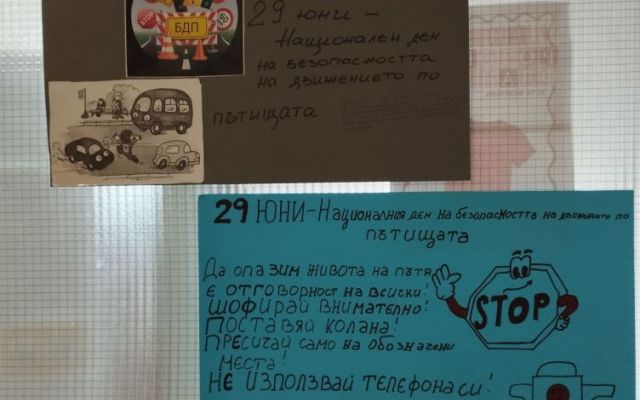 STOP
БДП
50
29 ЮНИ –
Национален ден
на безопасността
на движението по
пътищата
29 ЮНИ-Националния ден на безопасността на движението по
пътищата
Да опазим живота на пътя
е отговорност на всички!
Шофирай внимателно!
Поставяй колана!
Пресичай само на обозначени
места!
Не използвай телефона си!
STOP